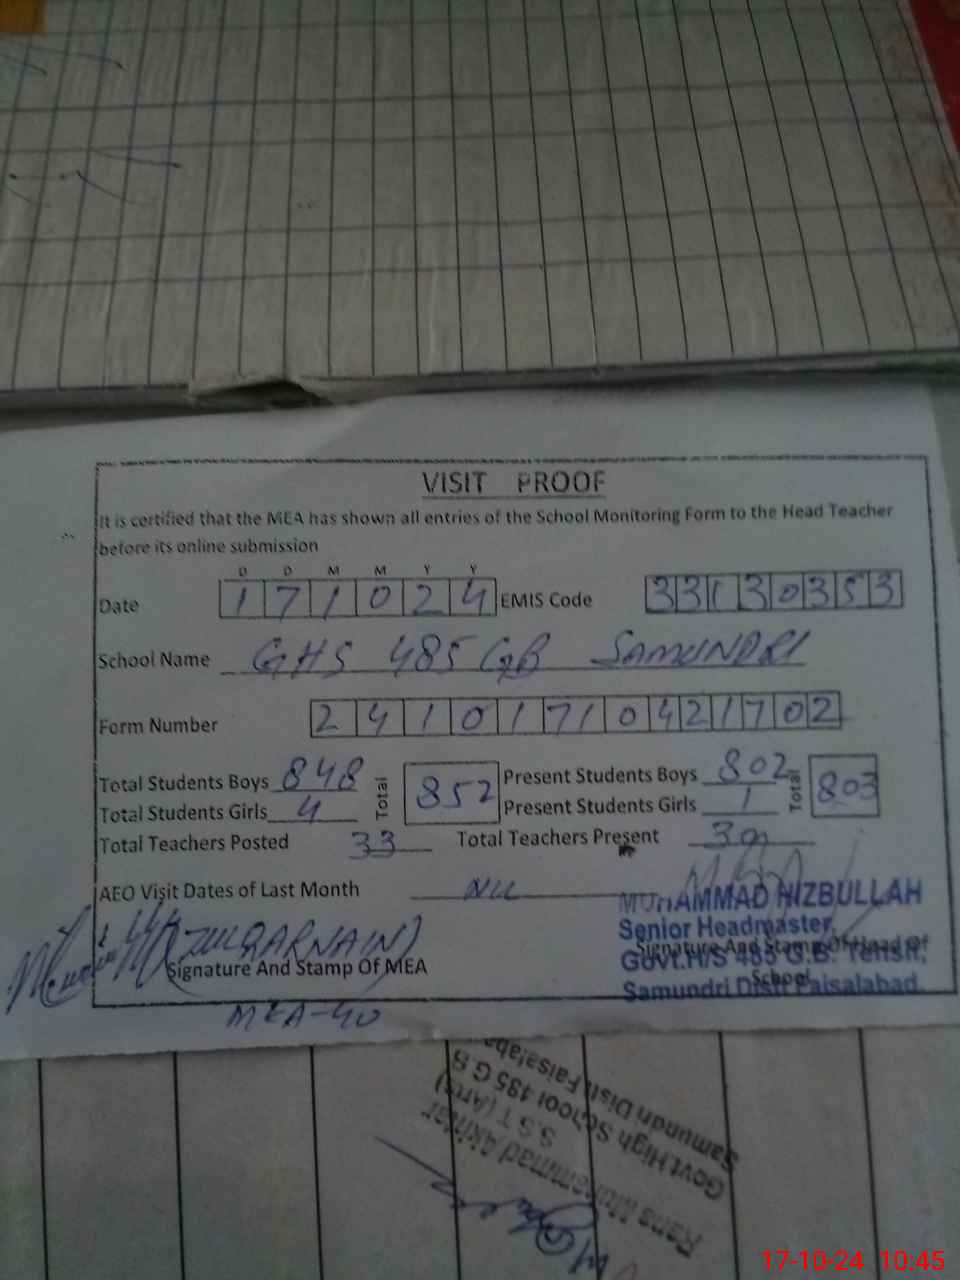 VISIT PROOF
It is certified that the MEA has shown all entries of the School Monitoring Form to the Head Teacher
before its online submission
D D M M Y Y
Date 171024 EMIS Code 33130353
School Name GHS 485 GB SAMUNDRI
Form Number 24101710421702
Total Students Boys 848 Total 852 Present Students Boys 802 Total 803
Total Students Girls 4 Present Students Girls 1
Total Teachers Posted 33 Total Teachers Present
AEO Visit Dates of Last Month NIL
MUHAMMAD HIZBULLAH
Senior Headmaster,
(ZULQARNAIN)
Signature And Stamp Of MEA
Signature And Stamp Of Head Of
School
Govt.H/S 485 G.B. Tehsil,
Samundri Distt Faisalabad
MEA-40
Rana Muhammad Akhtar
S.S T (Arts)
Govt.High School 485 G B
Samundri Distt Faisalabad
17-10-24 10:45